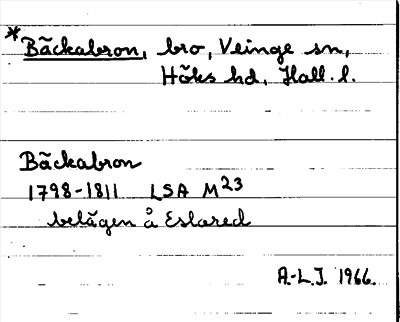 * Bäckabron, bro, Veinge sn,
Höks hd, Hall. l.
Bäckabron
1798-1811 LSA M23
belägen å Eslared
A.-L.J. 1966.